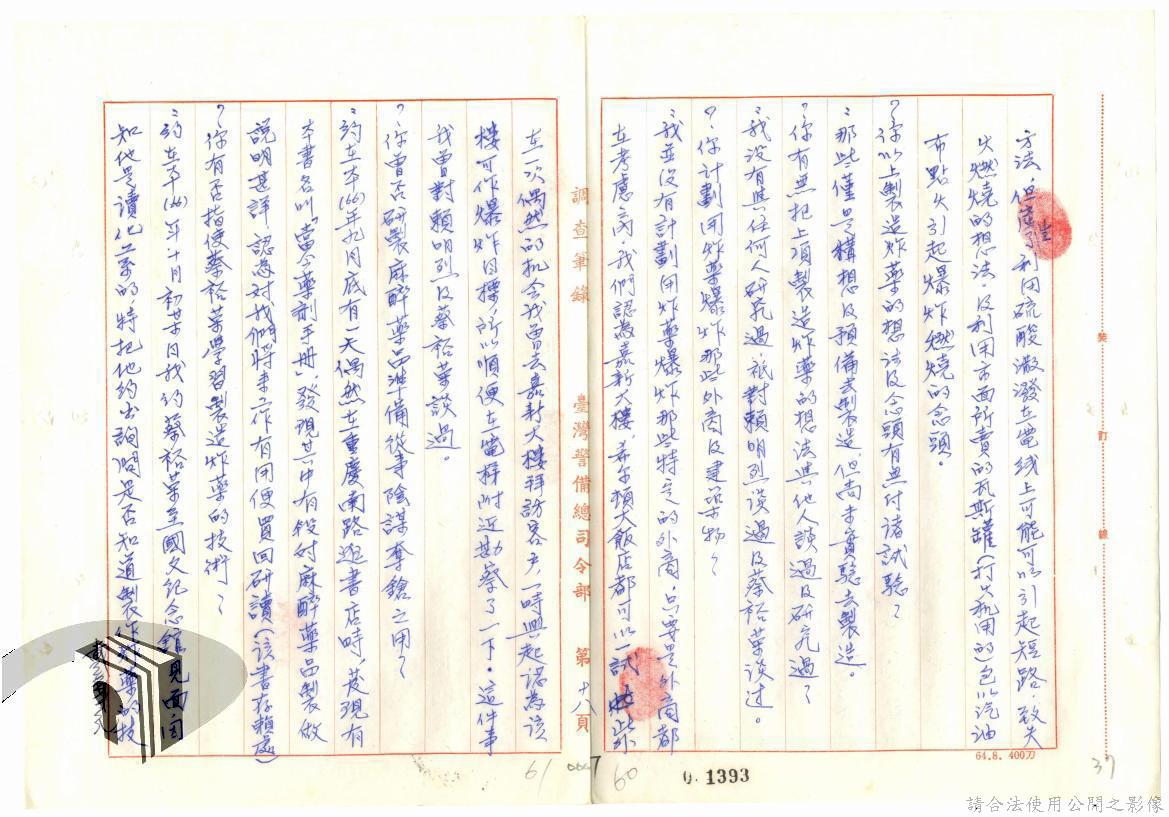 方法，但這了利用硫酸潑潑在電线上可能可以引起短路，致失
火燃燒的想法，及利用市面所賣的瓦斯罐（打火机用的）包以汽油
布點火引起爆炸燃燒的念頭。
？你以上製造炸藥的想法及念頭有無付諸試驗？
：那些僅是構想及預備去製造，但尚未實驗去製造。
？你有無把上項製造炸藥的想法與他人談過及研究過？
：我没有與任何人研究過，祇對賴明烈談過及蔡裕荣談过。
？你計劃用炸藥爆炸那些外商及建築物？
：我並没有計劃用炸藥爆炸那些特定的外商，只要是外商都
在考慮內，我們認為嘉新大樓，希尔頓大飯店都可以一試
調查筆錄
臺灣警備總司令部
第十八頁
在一次偶然的机会我曾去嘉新大樓拜訪客户一時興起認為該
樓可作爆炸目標，所以順便在電梯附近勘察了一下。這件事
我曾對賴明烈及蔡裕荣談過。
？你曾否研製麻醉藥品準備從事陰謀奪鎗之用？
：約在本(66)年九月底有一天偶然在重慶南路逛書店時，发現有
本書名叫「當今藥劑手冊」發現其中有段对麻醉藥品製做
說明甚詳，認為对我們將來工作有用便買回研讀（該書存賴處）
？你有否指使蔡裕荣學習製造炸藥的技術？
：約在本(66)年十月初某日我約蔡裕荣至國父紀念館見面因
知他是讀化工系的，特把他約出詢問是否知道製作炸藥的技
裝
訂
線
64.8. 400刀
0. 1393
60
61
0007
37
請合法使用公開之影像